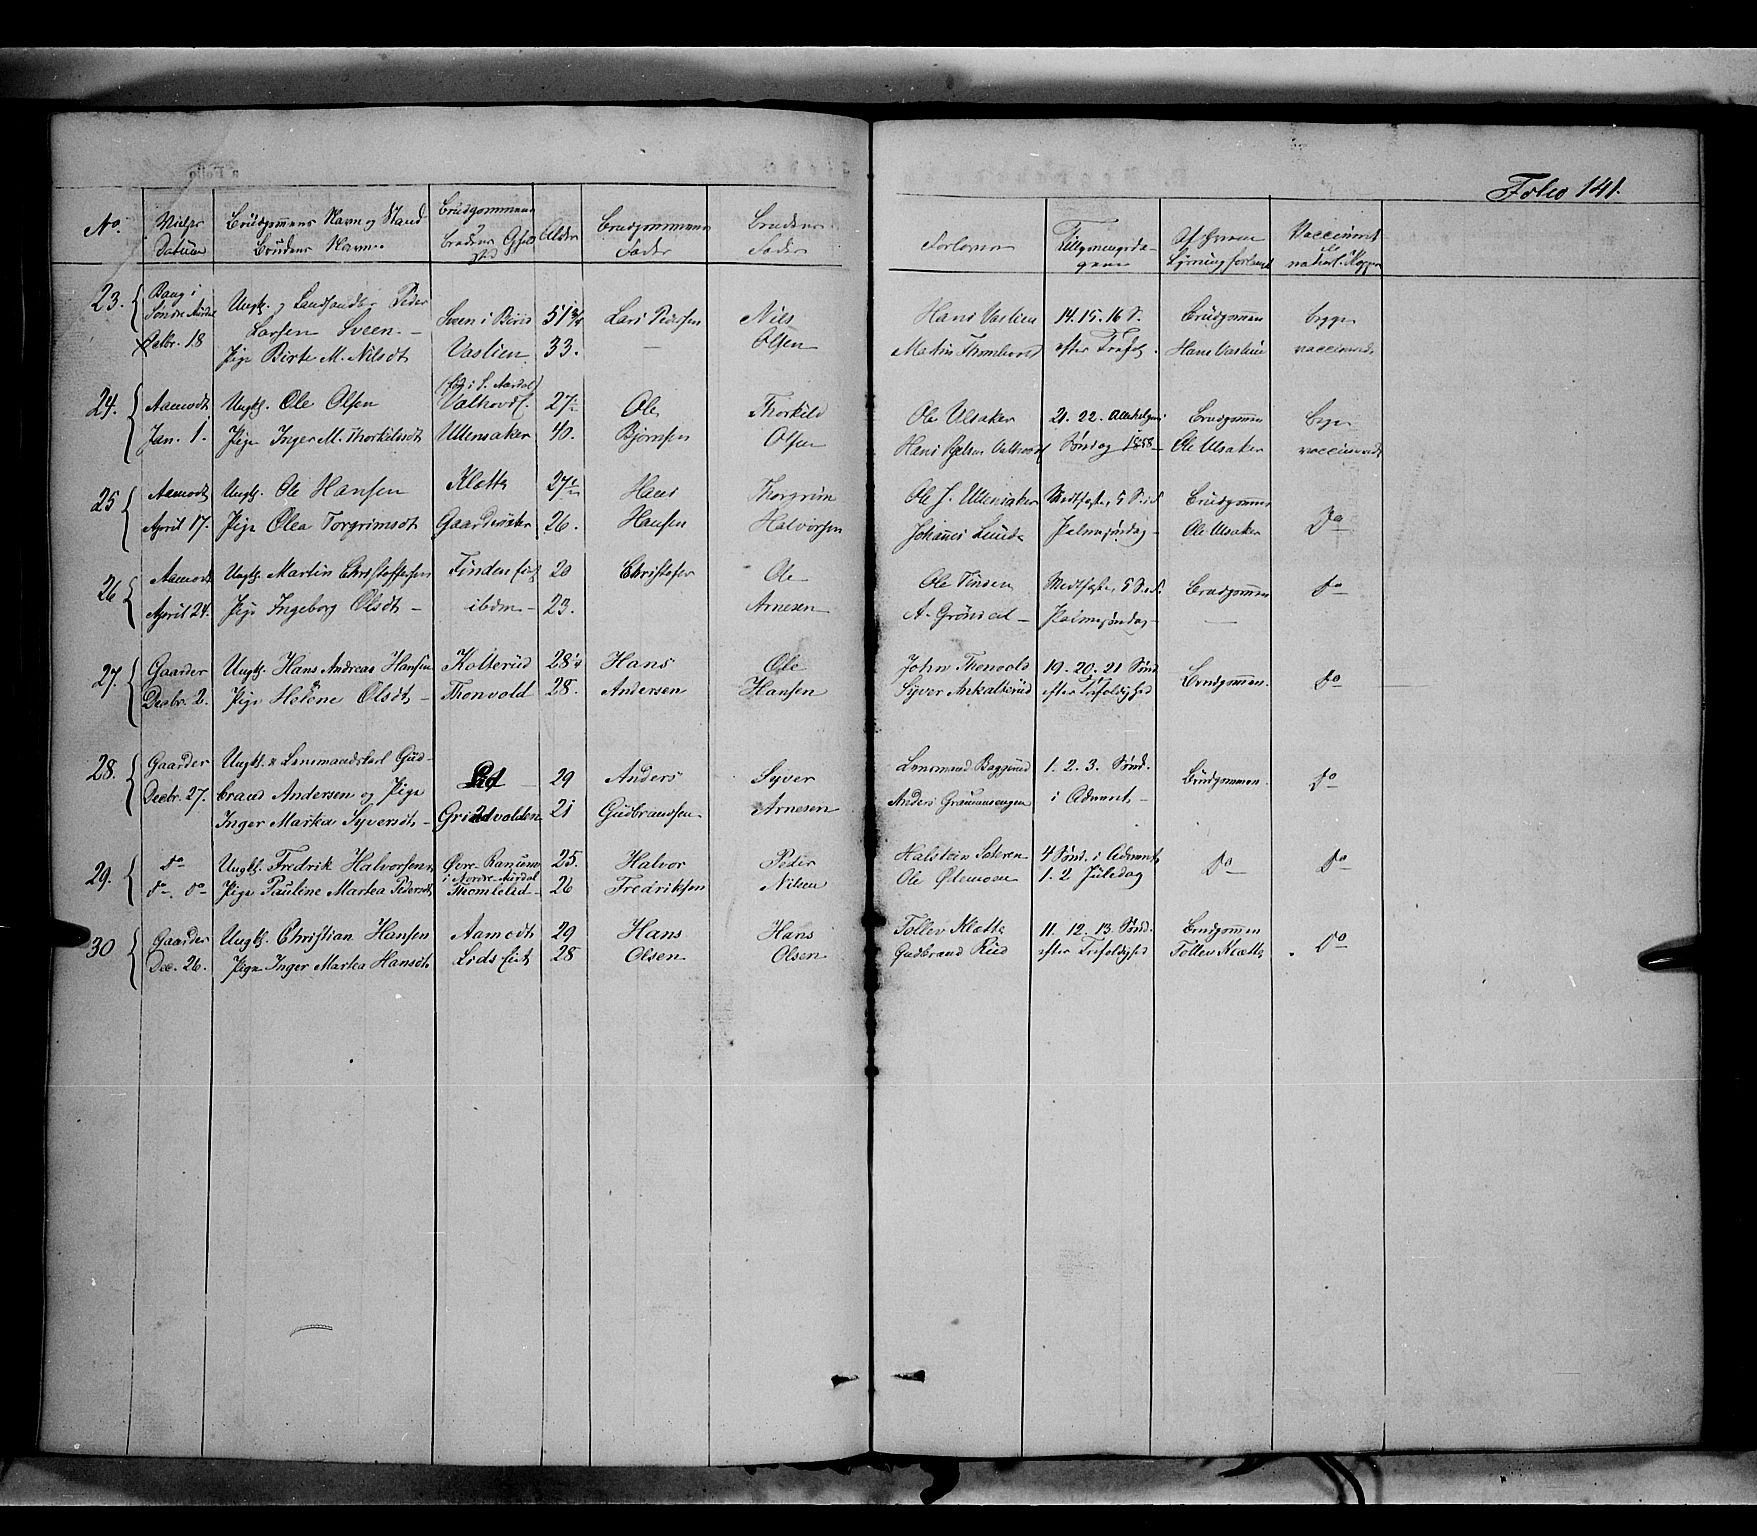 Folio 141.
No. Vielses Datum Brudgommens Navn og Stand Brudens Navn. Brudgommens og Brudens Opholdssted Alder Brudgommens Fader Brudens Fader Forlovere Tillysningsdagene Af hvem Lysning forlangt Vaccineret naturl. Kopper
23. Bang i Søndre Aurdal Octbr. 18
Ungk. og Landhandler Peder Larsen Sveen. – Sveen i Birid 51 3/4 Lars Pedersen Hans Vaslien 14. 15. 16 S. Brudgommen begge
Pige Birte M. Nilsdt Vaslien. 33. — Nils Olsen efter Trefol. Hans Vaslien vaccinerede
24. Aamodt Ungk. Ole Olsen (født i S. Aurdal) Valhovd 27 Ole Thorkild Ole Ulsaker 21. 22. Allehelgens Brudgommen begge
Jan. 1. Pige Inger M. Thorkilsdt Ullensaker 40. Bjørnsen Olsen Søndag 1858 Ole Ulsaker vaccinerede
25 Aamodt Ungk. Ole Hansen Klette 27 1/2 Hans Thorgrim Ole J. Ullensaker Midfaste, 5 S. i F. Brudgommen
April 17. Pige Olea Torgrimsdt Gaarder 26. Hansen Halvorsen Johannes Lunde Palmesøndag – Ole Ulsaker Do
26 Aamodt Ungk. Martin Christoffersen Finden Eiet 20 Christofer Ole Ole Finden Midfaste, 5 S. i F. Brudgommen do
April 24. Pige Ingeborg Olsdt – ibdm – 23. Arnesen A. Grønsed – Palmesøndag –
27. Gaarder Ungk. Hans Andreas Hansen Kolterud 28 1/4 Hans Ole John Thonvold 19. 20. 21 Sønd. Brudgommen. do
Decbr. 2. Pige Helene Olsdt – Thonvold 28. Andersen Hansen Syver efter Trefoldighed
28. Gaarder Ungk. & Lensmandskarl Gud- 29 Anders Syver Lensmand Baggerud 1. 2. 3. Sønd. Brudgommen. do
Decbr. 27. brand Andersen og Pige
Inger Marka Syversdt – Grindvolden 21 Gudbrandsen Arnesen Anders i Advent –
29. do Ungk. Fredrik Halvorsen Øvre Ranum i Nordre Aurdal 25. Halvor Peder Halstein 4 Sønd. i Advent do do
do. do Pige Pauline Marka Pedersdt Thomlelid – 26 Fredriksen Nilsen Ole Østmoen 1. 2 Juledag
30 Gaarder Ungk. Christian Hansen Aamodt 29 Hans Hans Tollev Klette 11. 12. 13. Sønd. Brudgommen
Dec. 26. Pige Inger Marka Hansdt Lids Eiet 28 Olsen Olsen Gudbrand Rud efter Trefoldighed Tollev Klette do